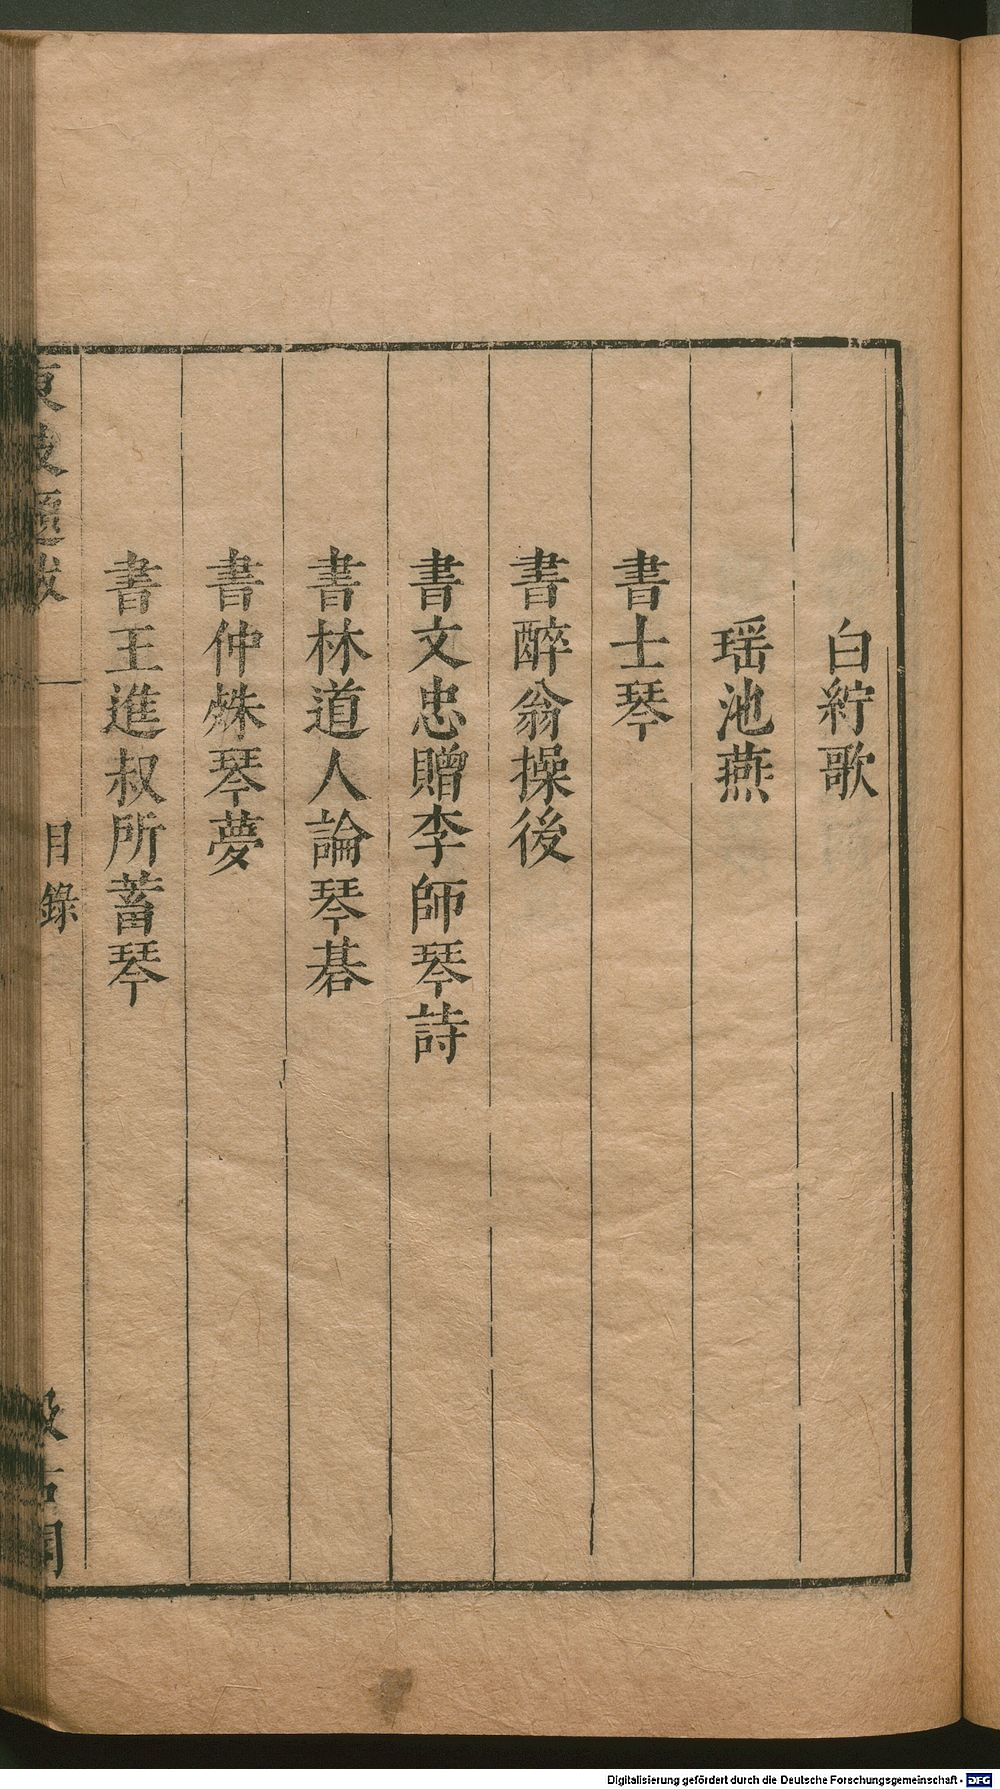 白紵歌
瑶池燕
書士琴
書醉翁操後
書文忠贈李師琴詩
書林道人論琴碁
書仲殊琴夢
書王進叔所蓄琴
東坡題跋
目錄
汲古閣
Digitalisierung gefördert durch die Deutsche Forschungsgemeinschaft - DFG